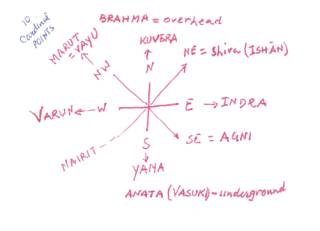 10
Cardinal
POINTS
BRAHMA = overhead
KUVERA
MARUT
= VAYU
NE = Shiva (ISHĀN)
NW
N
VARUN ← W
E → INDRA
NAIRIT
S
SE = AGNI
YAMA
ANATA (VASUKI) - underground